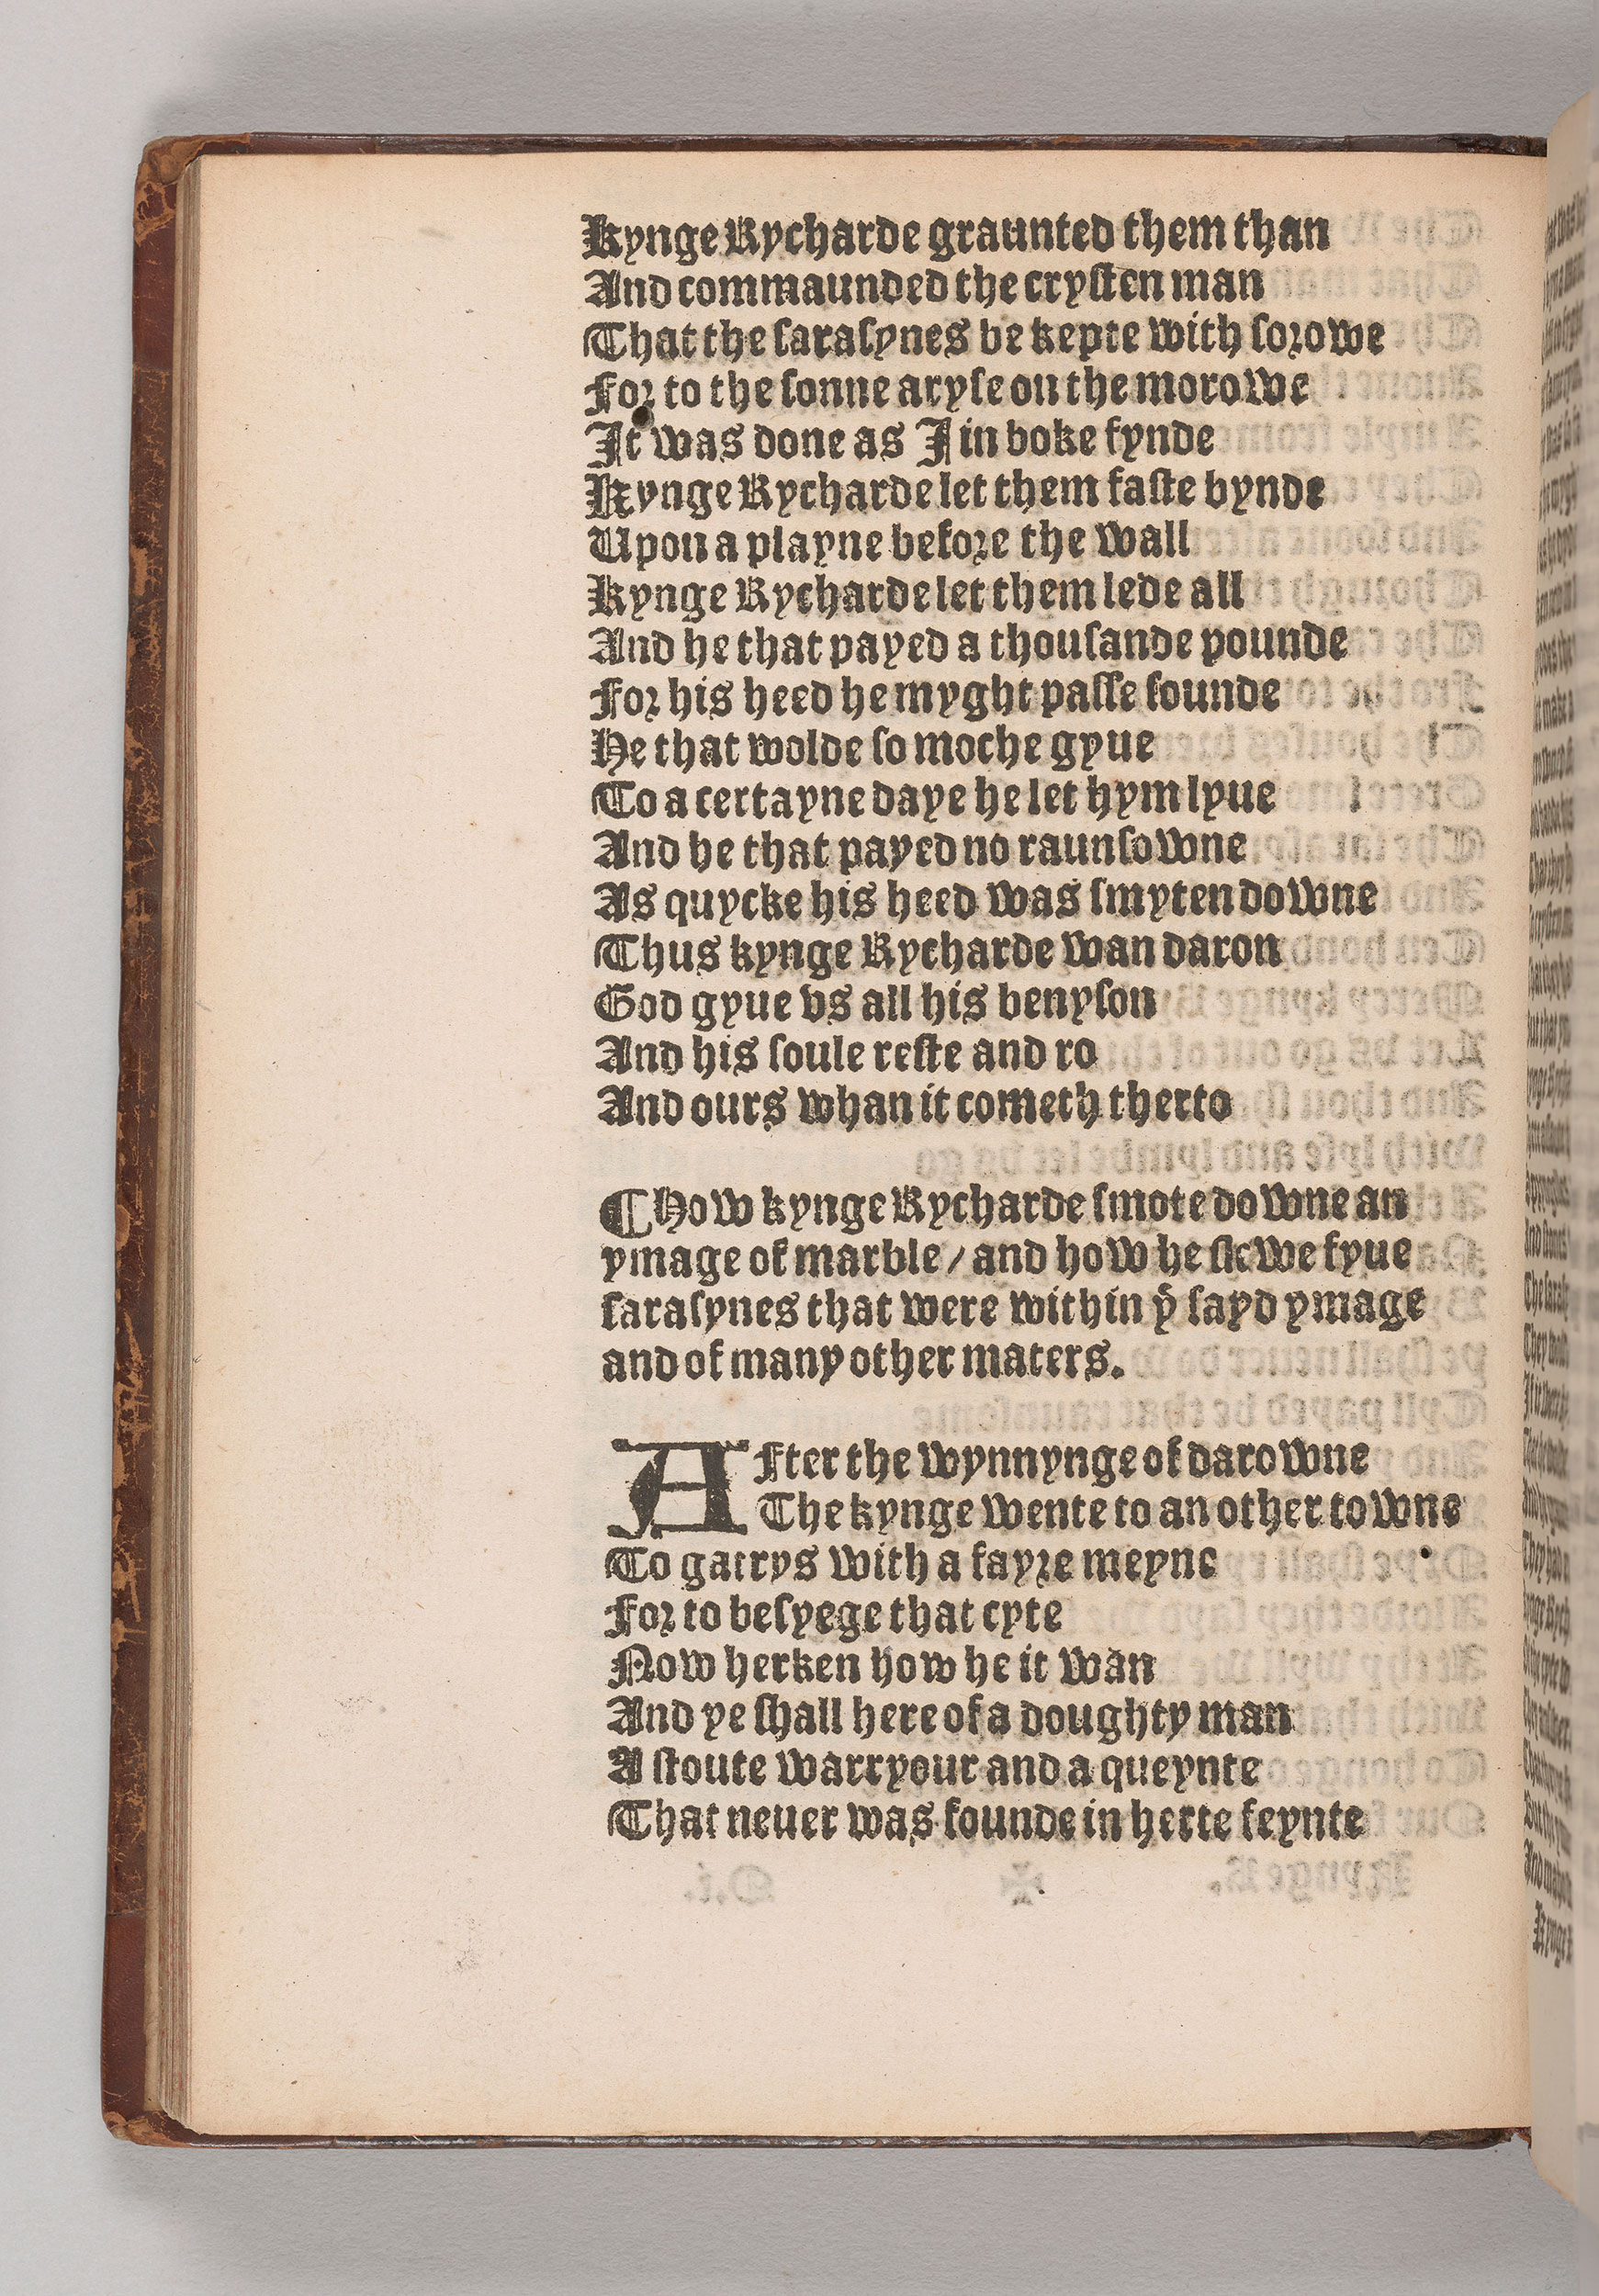 Kynge Rycharde graunted them than
And commaunded the crysten man
That the sarasynes be kepte with sorowe
For to the sonne aryse on the morowe
It was done as I in boke fynde
Kynge Rycharde let them faste bynde
Upon a playne before the wall
Kynge Rycharde let them lede all
And he that payed a thousande pounde
For his heed he myght passe sounde
He that wolde so moche gyue
To a certayne daye he let hym lyue
And he that payed no raunsowne
As quycke his heed was smyten downe
Thus kynge Rycharde wan daron
God gyue vs all his benyson
And his soule reste and ro
And ours whan it cometh therto
¶ How kynge Rycharde smote downe an
ymage of marble / and how he slewe fyue
sarasynes that were within ẙ sayd ymage
and of many other maters.
After the wynnynge of darowne
The kynge wente to an other towne
To gatrys with a fayre meyne
For to besyege that cyte
Now herken how he it wan
And ye shall here of a doughty man
A stoute warryour and a queynte
That neuer was founde in herte feynte